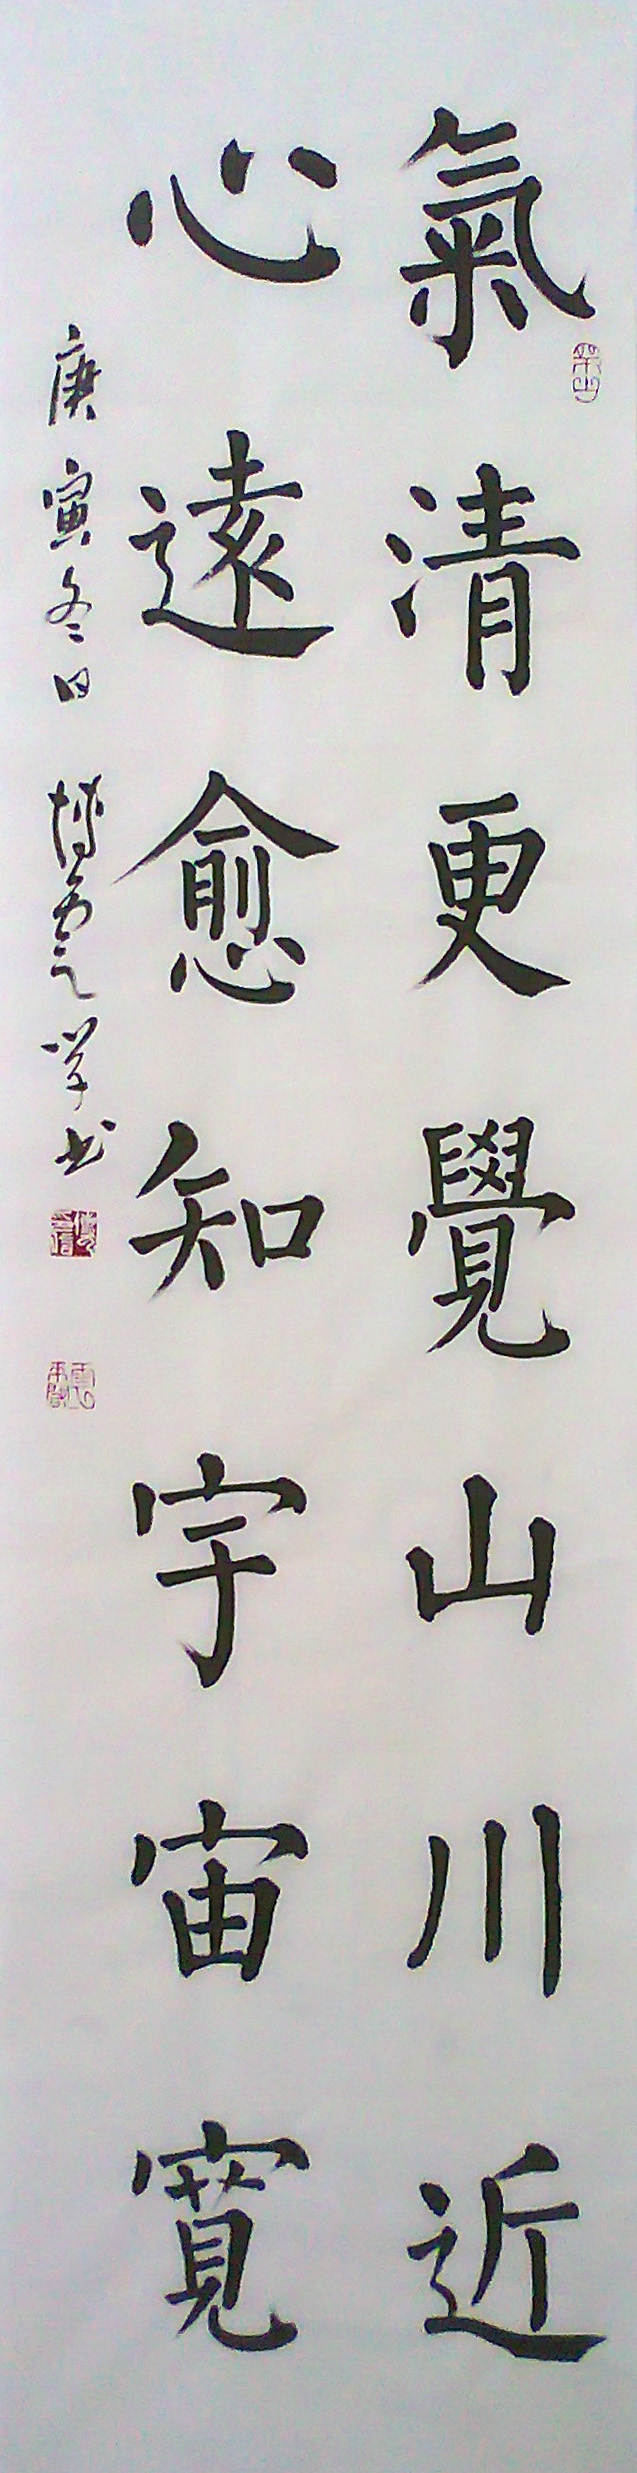 氣清更覺山川近
心遠愈知宇宙寬
庚寅冬日 博雲學书